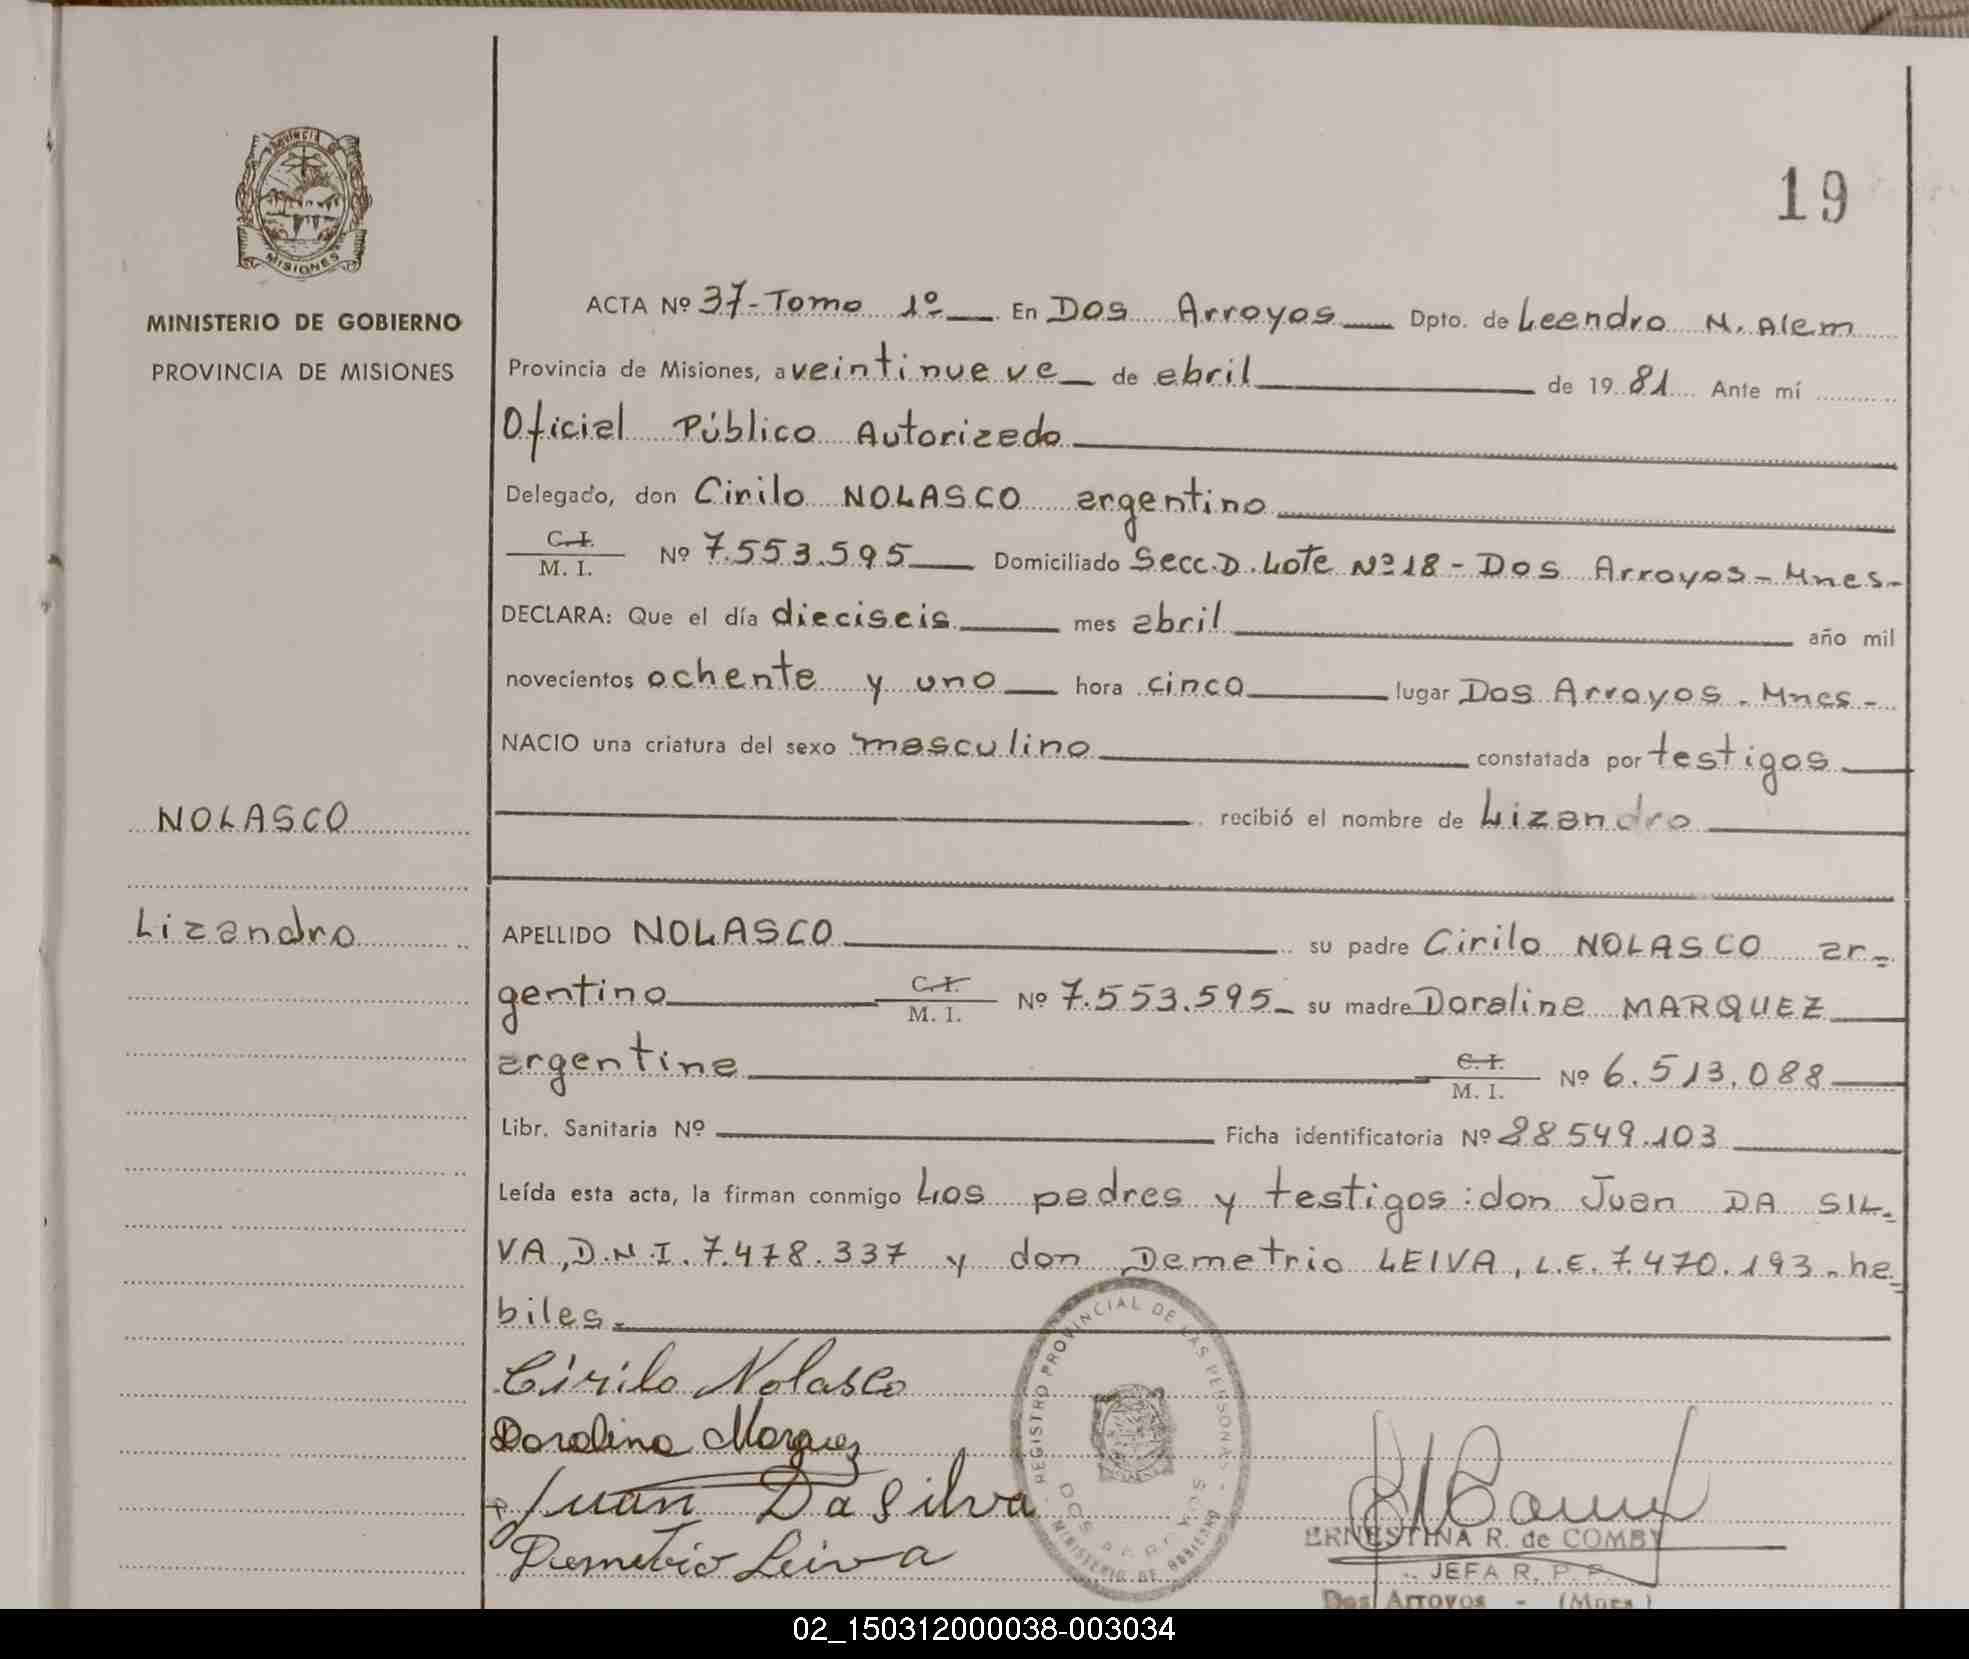 19
Provincia
MISIONES
MINISTERIO DE GOBIERNO
PROVINCIA DE MISIONES
ACTA Nº 37-Tomo 1º En Dos Arroyos Dpto. de Leandro N. Alem
Provincia de Misiones, a veintinueve de abril de 1981 Ante mí
Oficial Público Autorizado
Delegado, don Cirilo NOLASCO argentino
C. I. / M. I. Nº 7.553.595 Domiciliado Secc.D. Lote Nº 18 - Dos Arroyos - Mnes-
DECLARA: Que el día dieciseis mes abril año mil
novecientos ochenta y uno hora cinco lugar Dos Arroyos - Mnes-
NACIO una criatura del sexo masculino constatada por testigos
NOLASCO
recibió el nombre de Lizandro
Lizandro
APELLIDO NOLASCO su padre Cirilo NOLASCO ar=
gentino C. I. / M. I. Nº 7.553.595 su madre Doralina MARQUEZ
argentina C. I. / M. I. Nº 6.513.088
Libr. Sanitaria Nº Ficha identificatoria Nº 28.549.103
Leída esta acta, la firman conmigo Los padres y testigos: don Juan DA SIL=
VA, D.N.I. 7.478.337 y don Demetrio LEIVA, L.E. 7.470.193.-ha=
biles.-
Cirilo Nolasco
Doralina Marquez
Juan Da Silva
Demetrio Leiva
REGISTRO PROVINCIAL DE LAS PERSONAS
DOS ARROYOS
MINISTERIO DE GOBIERNO
ERNESTINA R. de COMBY
JEFA R. P. P.
Dos Arroyos - (Mnes.)
02_150312000038-003034